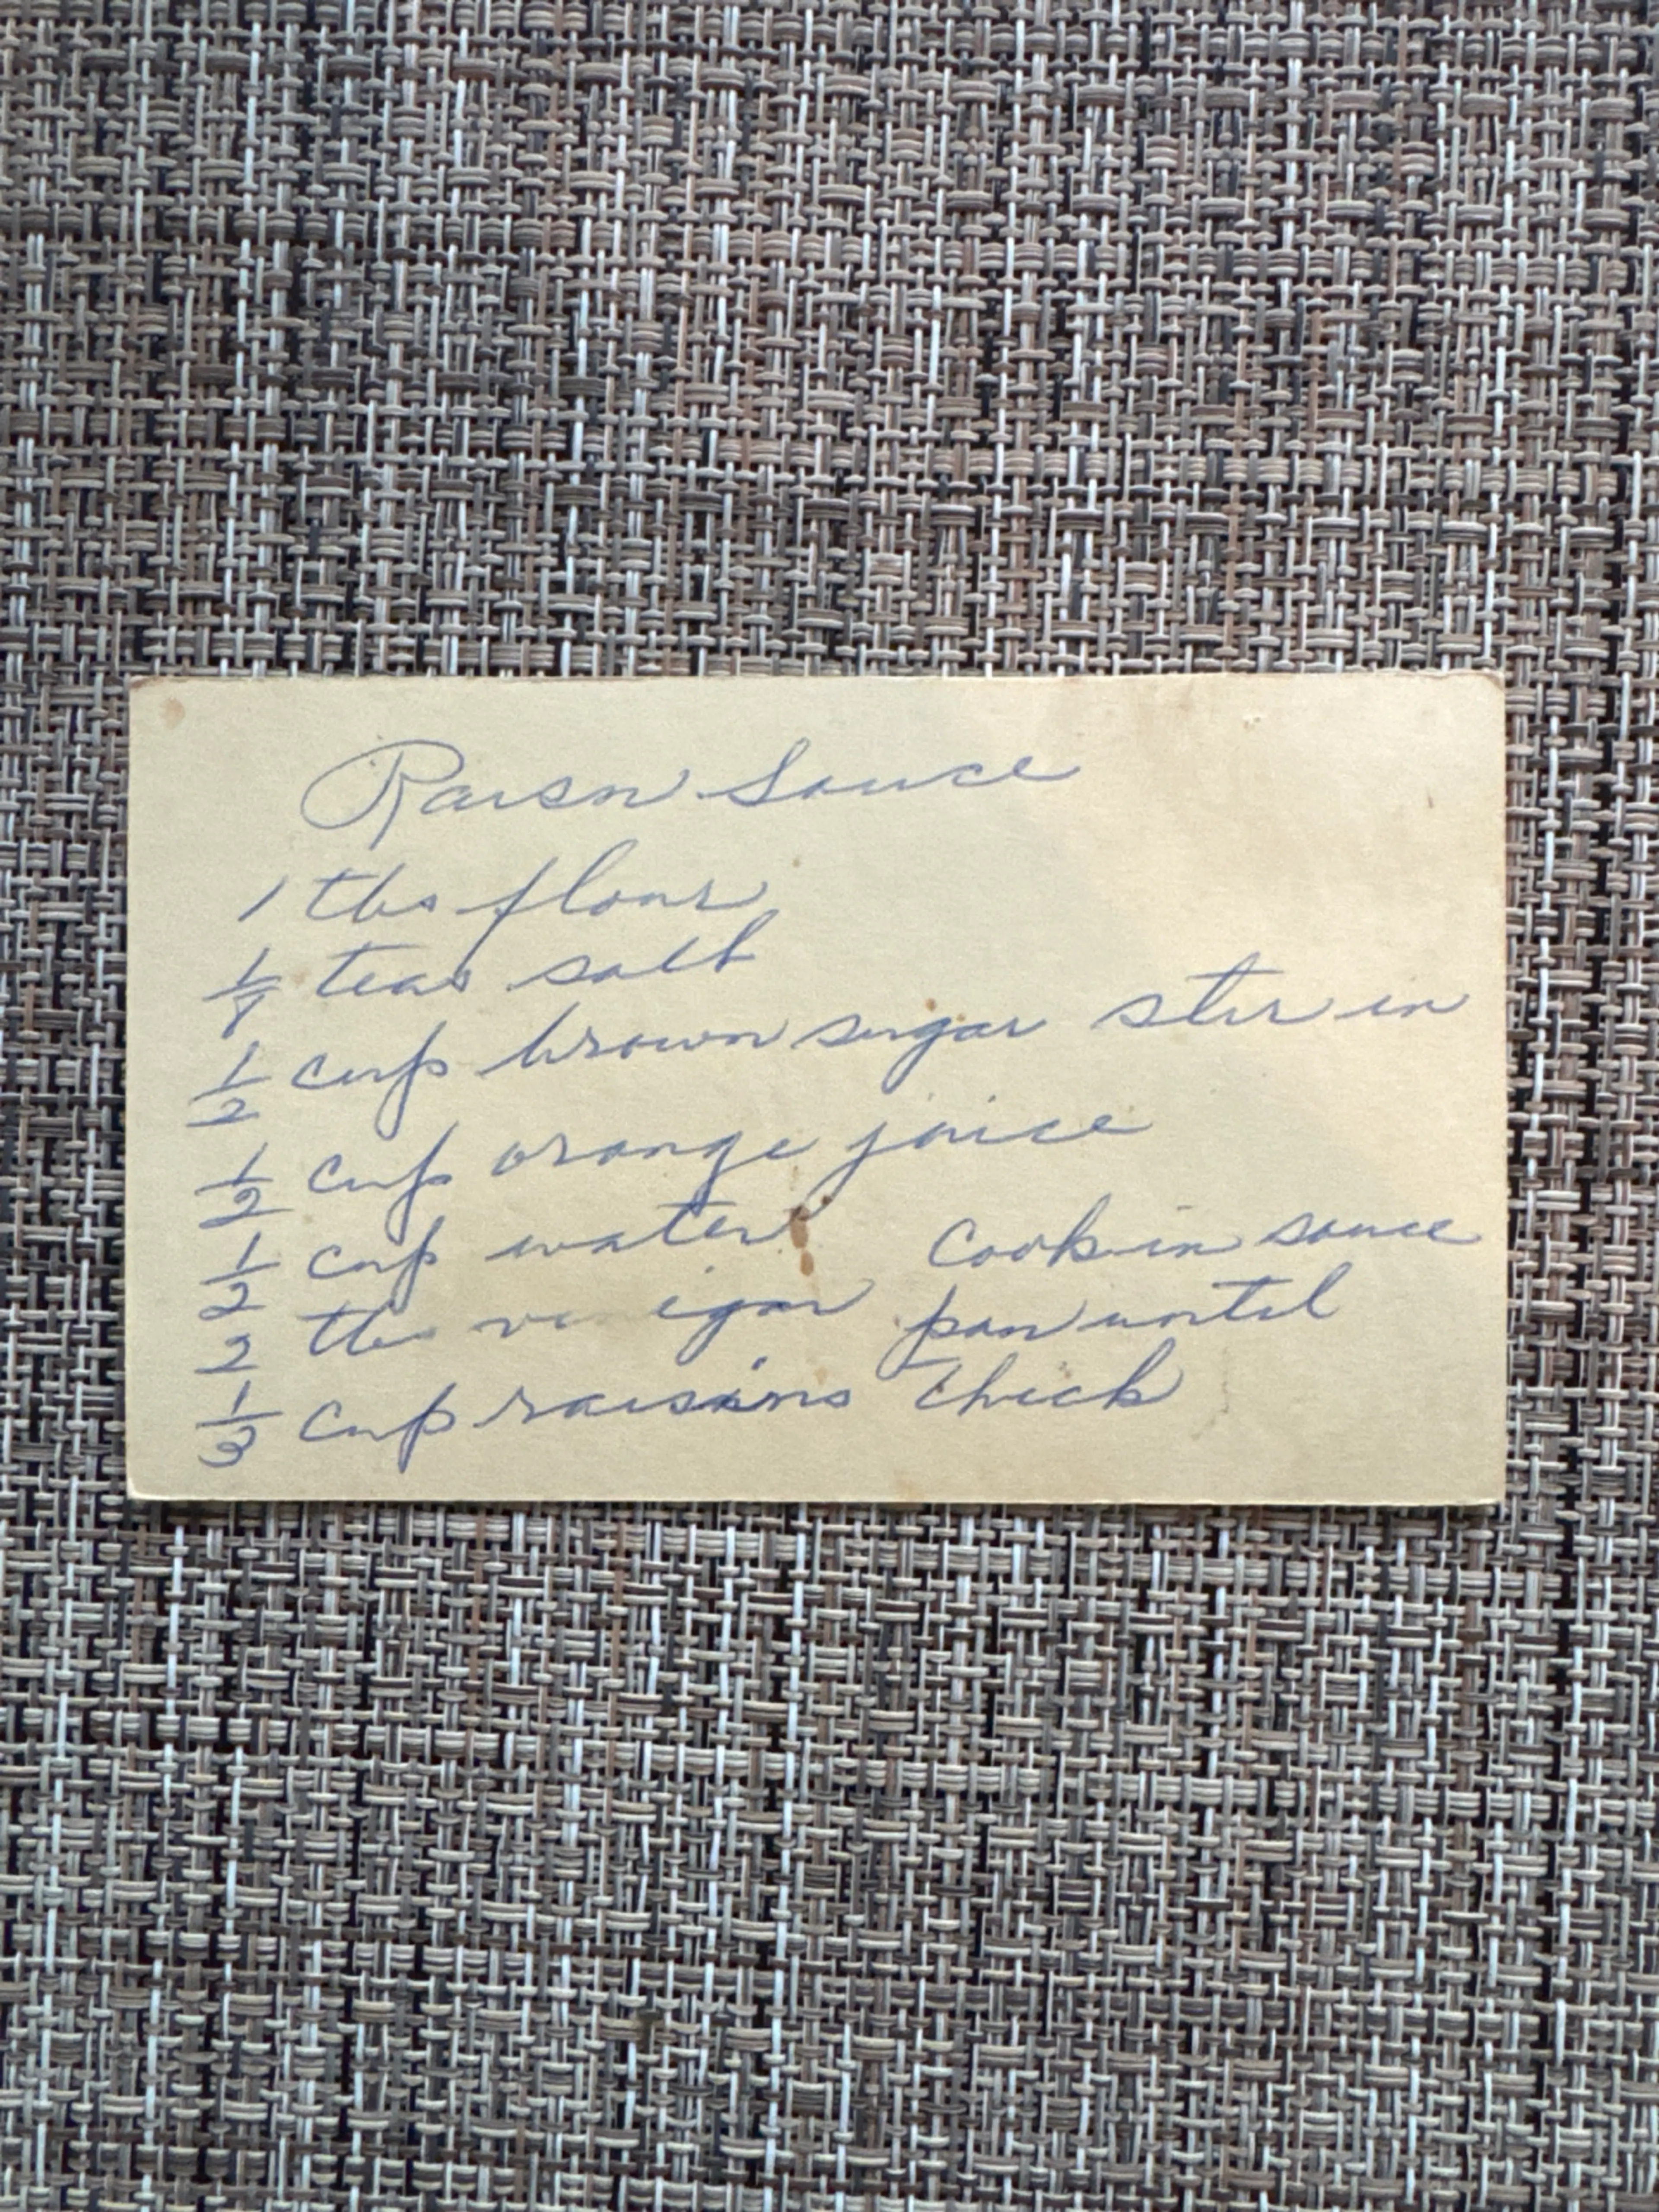 Raisin Sauce
1 tbs flour
1/8 teas salt
1/2 cup brown sugar stir in
1/2 cup orange juice
1/2 cup water
2 tbs vinegar
1/3 cup raisins
Cook in sauce
pan until
thick